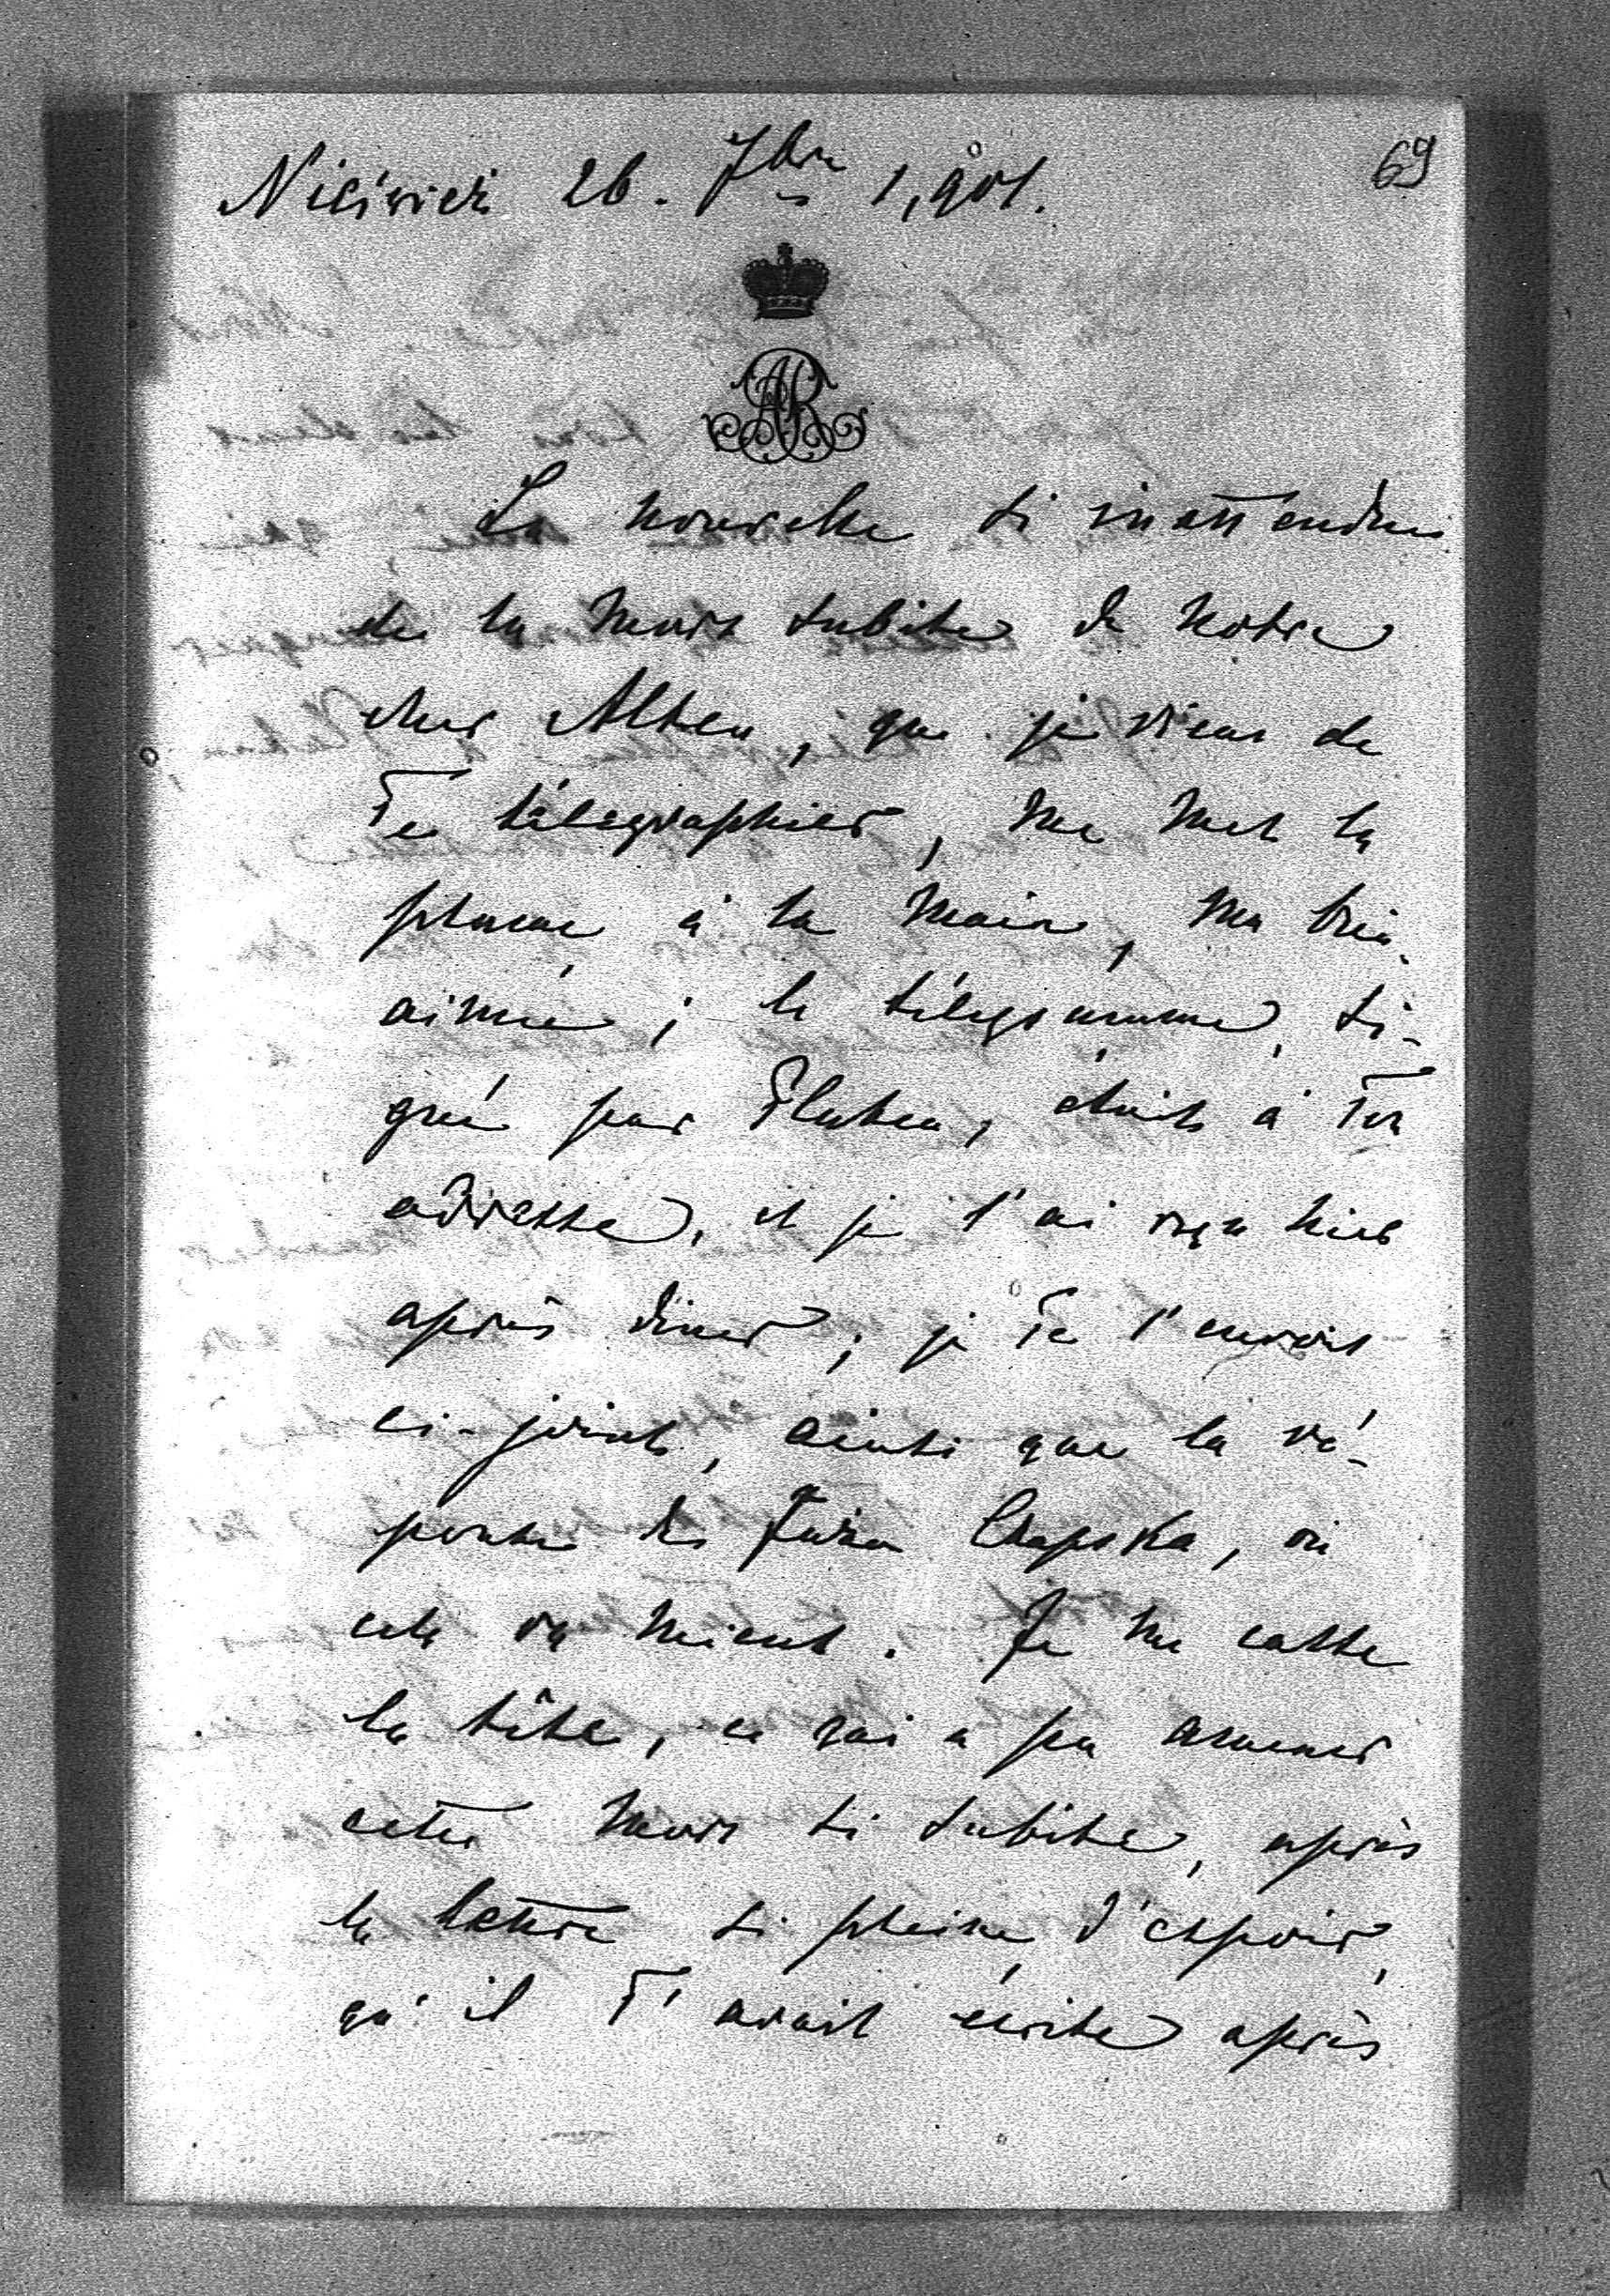 69
Nieśwież 26. 7bre 1,901.
AR
La nouvelle si inattendue
de la mort subite de notre
cher Alten, que je viens de
Te télégraphier, me met la
plume à la main, ma bien
aimée; le télégramme, si-
gné par Platen, était à Ton
adresse, et je l'ai reçu hier
après diner; je Te l'envois
ci-joint, ainsi que la ré-
ponse de Józia Czapska, où
cela va mieux. Je me casse
la tête, ce qui a pu amener
cette mort si subite, après
la lettre si pleine d'espoir,
qu'il T'avait écrite après